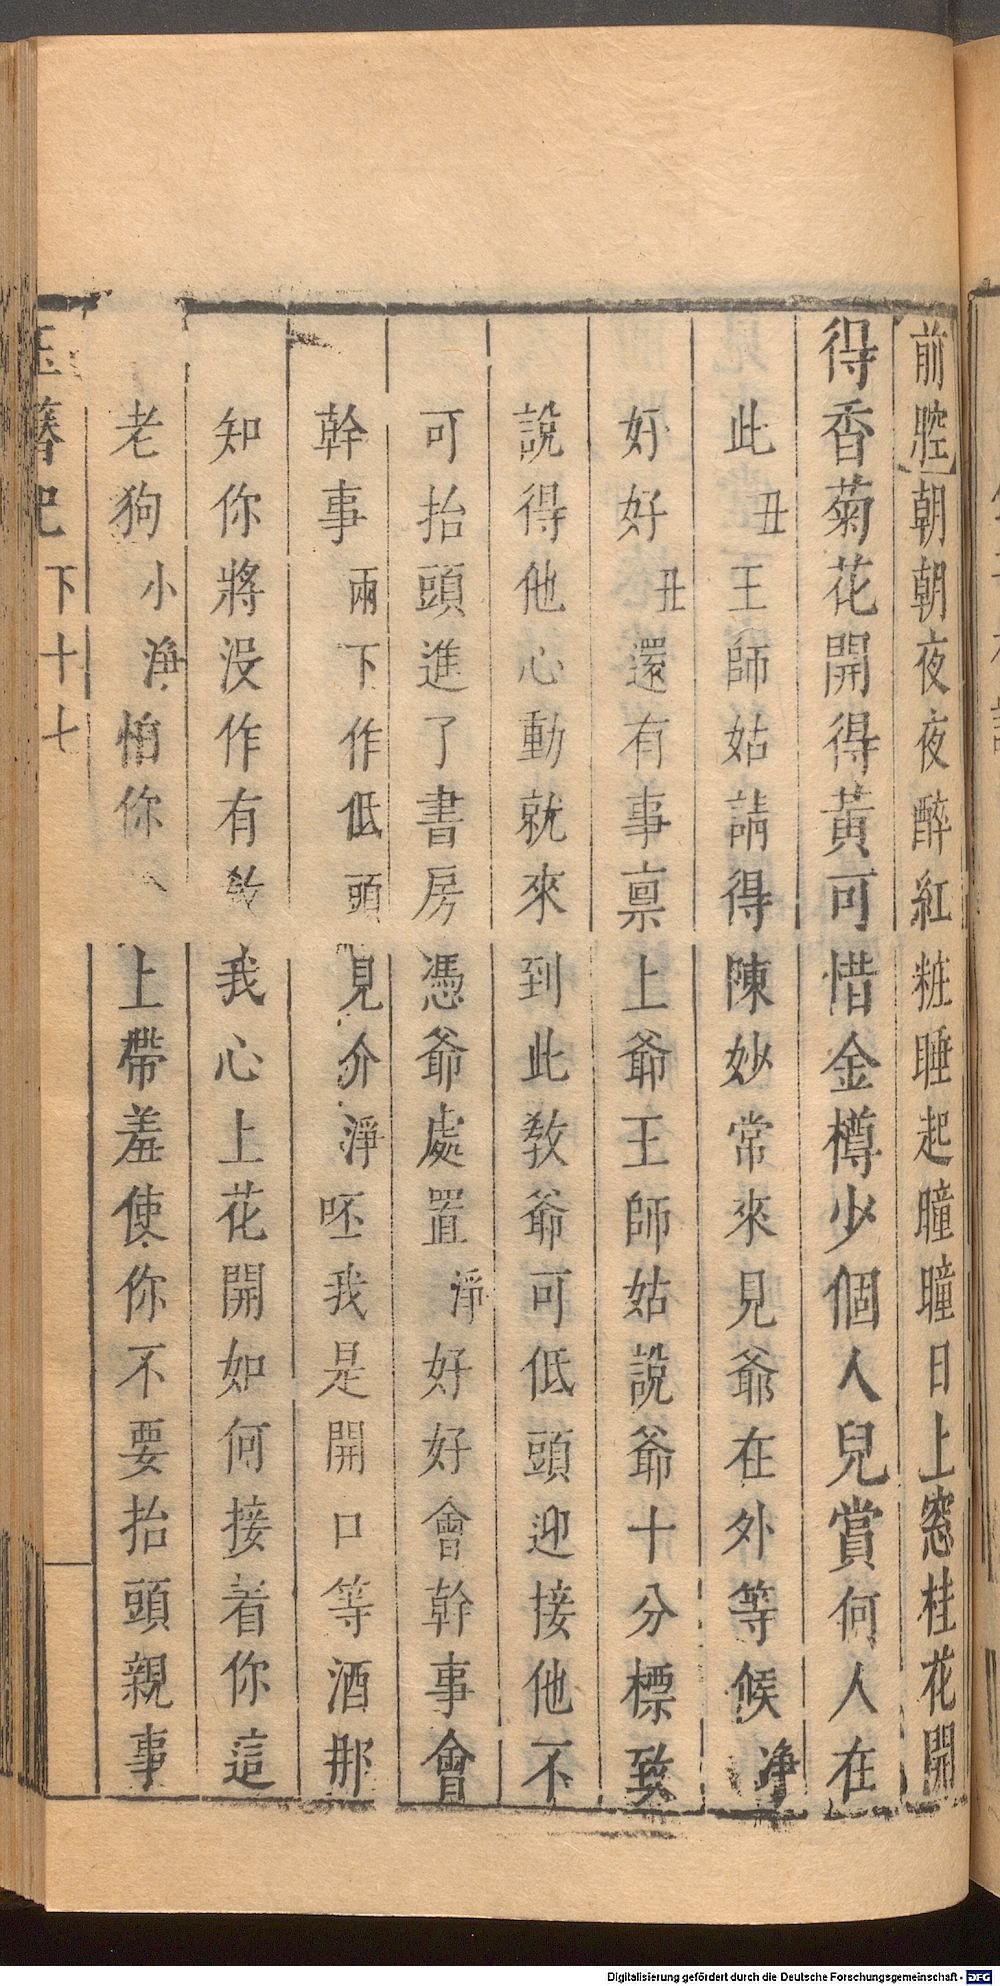 前腔朝朝夜夜醉紅粧睡起瞳瞳日上窓桂花開
得香菊花開得黃可惜金樽少個人兒賞何人在
此丑王師姑請得陳妙常來見爺在外等候净
好好丑還有事禀上爺王師姑說爺十分標致
說得他心動就來到此教爺可低頭迎接他不
可抬頭進了書房憑爺處置淨好好會幹事會
幹事兩下作低頭見介淨呸我是開口等酒那
知你將没作有教我心上花開如何接着你這
老狗小淨怕你上帶羞使你不要抬頭親事
玉簪記 下十七
Digitalisierung gefördert durch die Deutsche Forschungsgemeinschaft - DFG